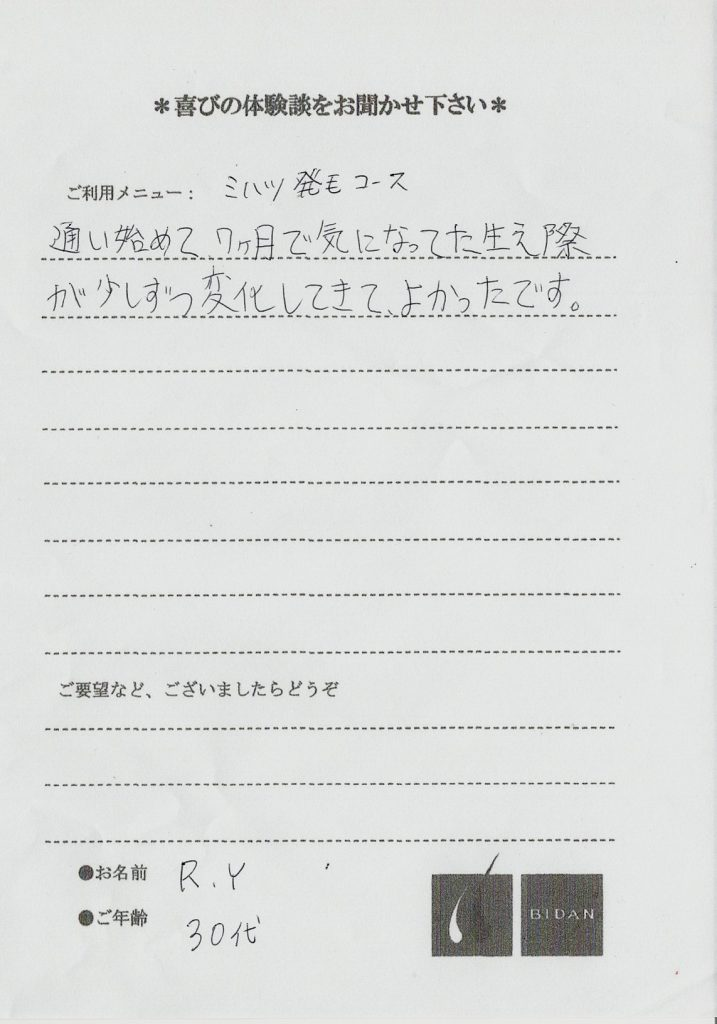 ＊喜びの体験談をお聞かせ下さい＊
ご利用メニュー： ミハツ発毛コース
通い始めて、7ヶ月で気になってた生え際
が少しずつ変化してきて、よかったです。
ご要望など、ございましたらどうぞ
●お名前 R.Y
●ご年齢 30代
BIDAN